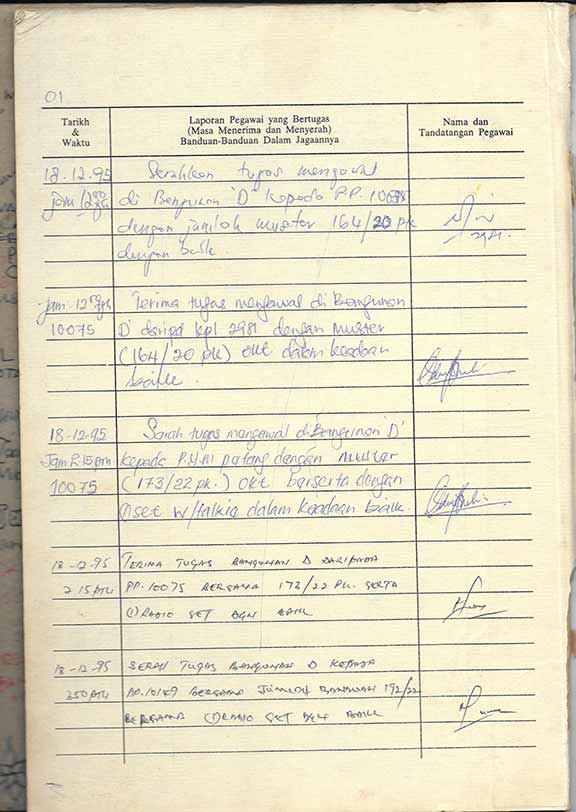 01
Tarikh
&
Waktu
Laporan Pegawai yang Bertugas
(Masa Menerima dan Menyerah)
Banduan-Banduan Dalam Jagaannya
Nama dan
Tandatangan Pegawai
18.12.95 Serahkan tugas mengawal
di Bangunan 'D' kepada P.P.
dengan jumlah muster 164/20 pk
dengan baik.
2981.
Jam. 12 Terima tugas mengawal di Bangunan
10075 D' daripd kpl 2981 dengan muster
(164/20 pk) okt dalam keadaan
baik.
18-12-95 Serah tugas mengawal di Bangunan 'D'
Jam 2.15 ptm kepada P.H.M petang dengan muster
10075 (173/22 pk.) okt berserta dengan
(1) set w/talkie dalam keadaan baik.
18-12-95 TERIMA TUGAS BANGUNAN D DARIPADA
2.15 ptg PP. 10075 BERSAMA 173/22 PK. SERTA
(1) RADIO SET DGN BAIK
18-12-95 SERAH TUGAS BANGUNAN D KEPADA
350 ptg PP. 10149 BERSAMA JUMLAH BANDUAN 192/22
BERSAMA (1) RADIO SET DGN BAIK